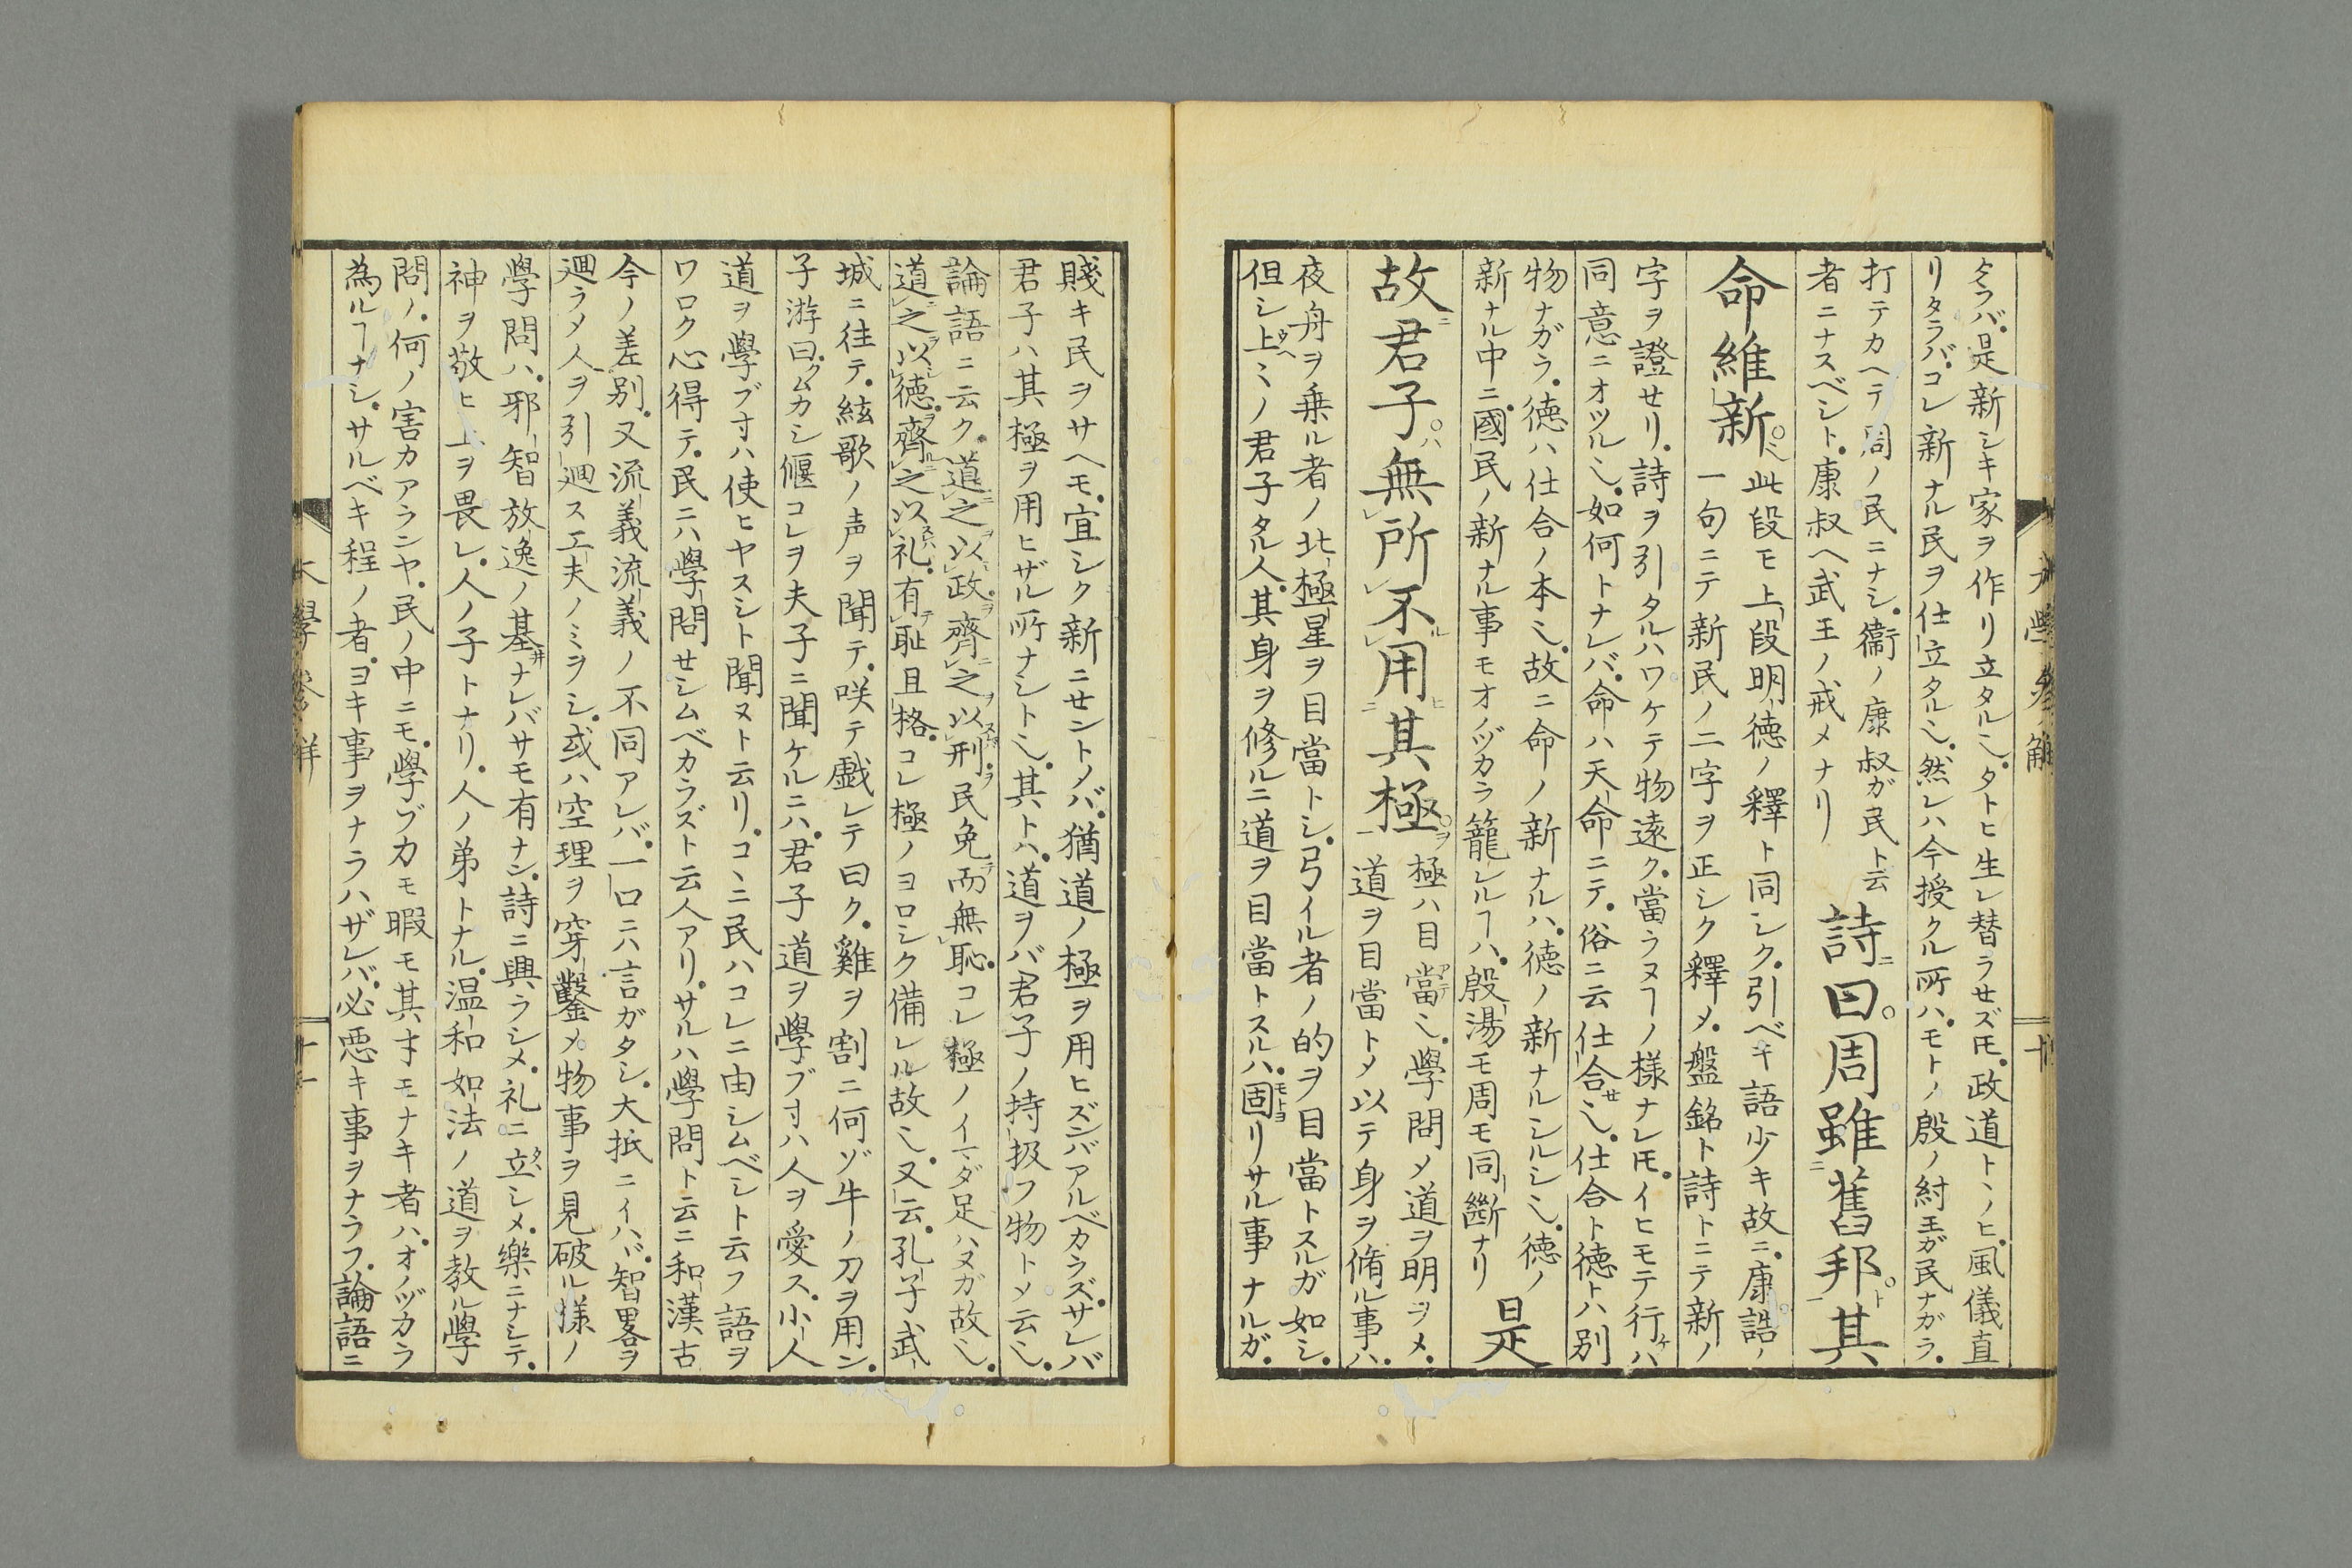 タラバ是新シキ家ヲ作リ立タル也タトヒ生レ替ラセズ𪜈政道トヽノヒ風儀直
リタラバコレ新ナル民ヲ仕立タル也然レハ今授クル所ハモトノ殷ノ紂王ガ民ナガラ
打テカヘテ周ノ民ニナシ衞ノ康叔ガ民ト云
者ニナスベシト康叔ヘ武王ノ戒メナリ
詩ニ曰周雖舊邦ト其
命維新
此段モ上段明徳ノ釋ト同シク引ベキ語少キ故ニ康誥ノ
一句ニテ新民ノ二字ヲ正シク釋メ盤銘ト詩トニテ新ノ
字ヲ證セリ詩ヲ引タルハワケテ物遠ク當ラヌヿノ様ナレ𪜈イヒモテ行ケハ
同意ニオツル也如何トナレバ命ハ天命ニテ俗ニ云仕合セ也仕合ト徳トハ別
物ナガラ徳ハ仕合ノ本也故ニ命ノ新ナルハ徳ノ新ナルシルシ也徳ノ
新ナル中ニ國民ノ新ナル事モオノヅカラ籠レルヿハ殷湯モ周モ同斷ナリ
是
故ニ君子ハ無所不ル用ヒ其極ヲ
極ハ目當アテ也學問メ道ヲ明ヲメ
道ヲ目當トメ以テ身ヲ脩ル事ハ
夜舟ヲ乗ル者ノ北極星ヲ目當トシ弓イル者ノ的ヲ目當トスルガ如シ
但シ上ウヘミノ君子タル人其身ヲ修ルニ道ヲ目當トスルハ固モトヨリサル事ナルガ
賤キ民ヲサヘモ宜シク新ニセントノバ猶道ノ極ヲ用ヒズンバアルベカラズサレバ
君子ハ其極ヲ用ヒザル所ナシト也其トハ道ヲバ君子ノ持扱フ物トメ云也
論語ニ云ク道之以政齊之以刑民免而無恥コレ極ノイマダ足ハヌガ故也
道之以徳齊之以礼有耻且格コレ極ノヨロシク備レル故也又云孔子武
城ニ往テ絃歌ノ声ヲ聞テ咲テ戯レテ曰ク雞ヲ割ニ何ゾ牛ノ刀ヲ用ン
子游曰クムカシ偃コレヲ夫子ニ聞ケルニハ君子道ヲ學ブ寸ハ人ヲ愛ス小人
道ヲ學ブ寸ハ使ヒヤスシト聞ヌト云リコヽニ民ハコレニ由シムベシト云フ語ヲ
ワロク心得テ民ニハ學問セシムベカラズト云人アリサルハ學問ト云ニ和漢古
今ノ差別又流義流義ノ不同アレバ一口ニハ言ガタシ大抵ニイハヾ智畧ヲ
廻ラメ人ヲ引廻ス工夫ノミヲシ或ハ空理ヲ穿鑿メ物事ヲ見破ル様ノ
學問ハ邪智放逸ノ基ナレバサモ有ナン詩ニ興ラシメ礼ニ立タヽシメ樂ニナシテ
神ヲ敬ヒ上ヲ畏レ人ノ子トナリ人ノ弟トナル温和如法ノ道ヲ教ル學
問ノ何ノ害カアランヤ民ノ中ニモ學ブカモ暇モ其才モナキ者ハオノヅカラ
為ルヿナシサルベキ程ノ者ヨキ事ヲナラハザレバ必悪キ事ヲナラフ論語ニ